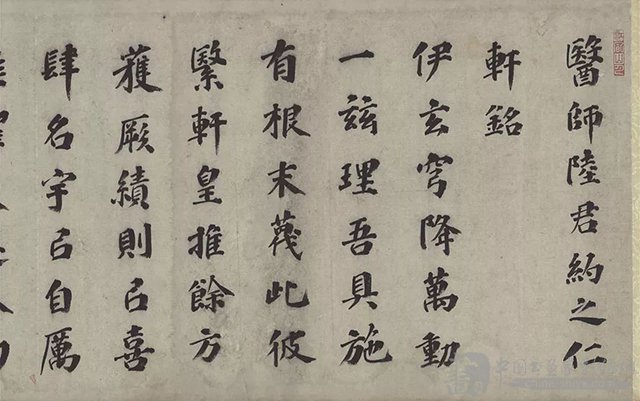 醫師陸君約之仁
軒銘
伊玄穹降萬動
一兹理吾具施
有根末蔑此彼
繄軒皇推餘方
蒦厥績則㠯喜
肆名宇㠯自厲